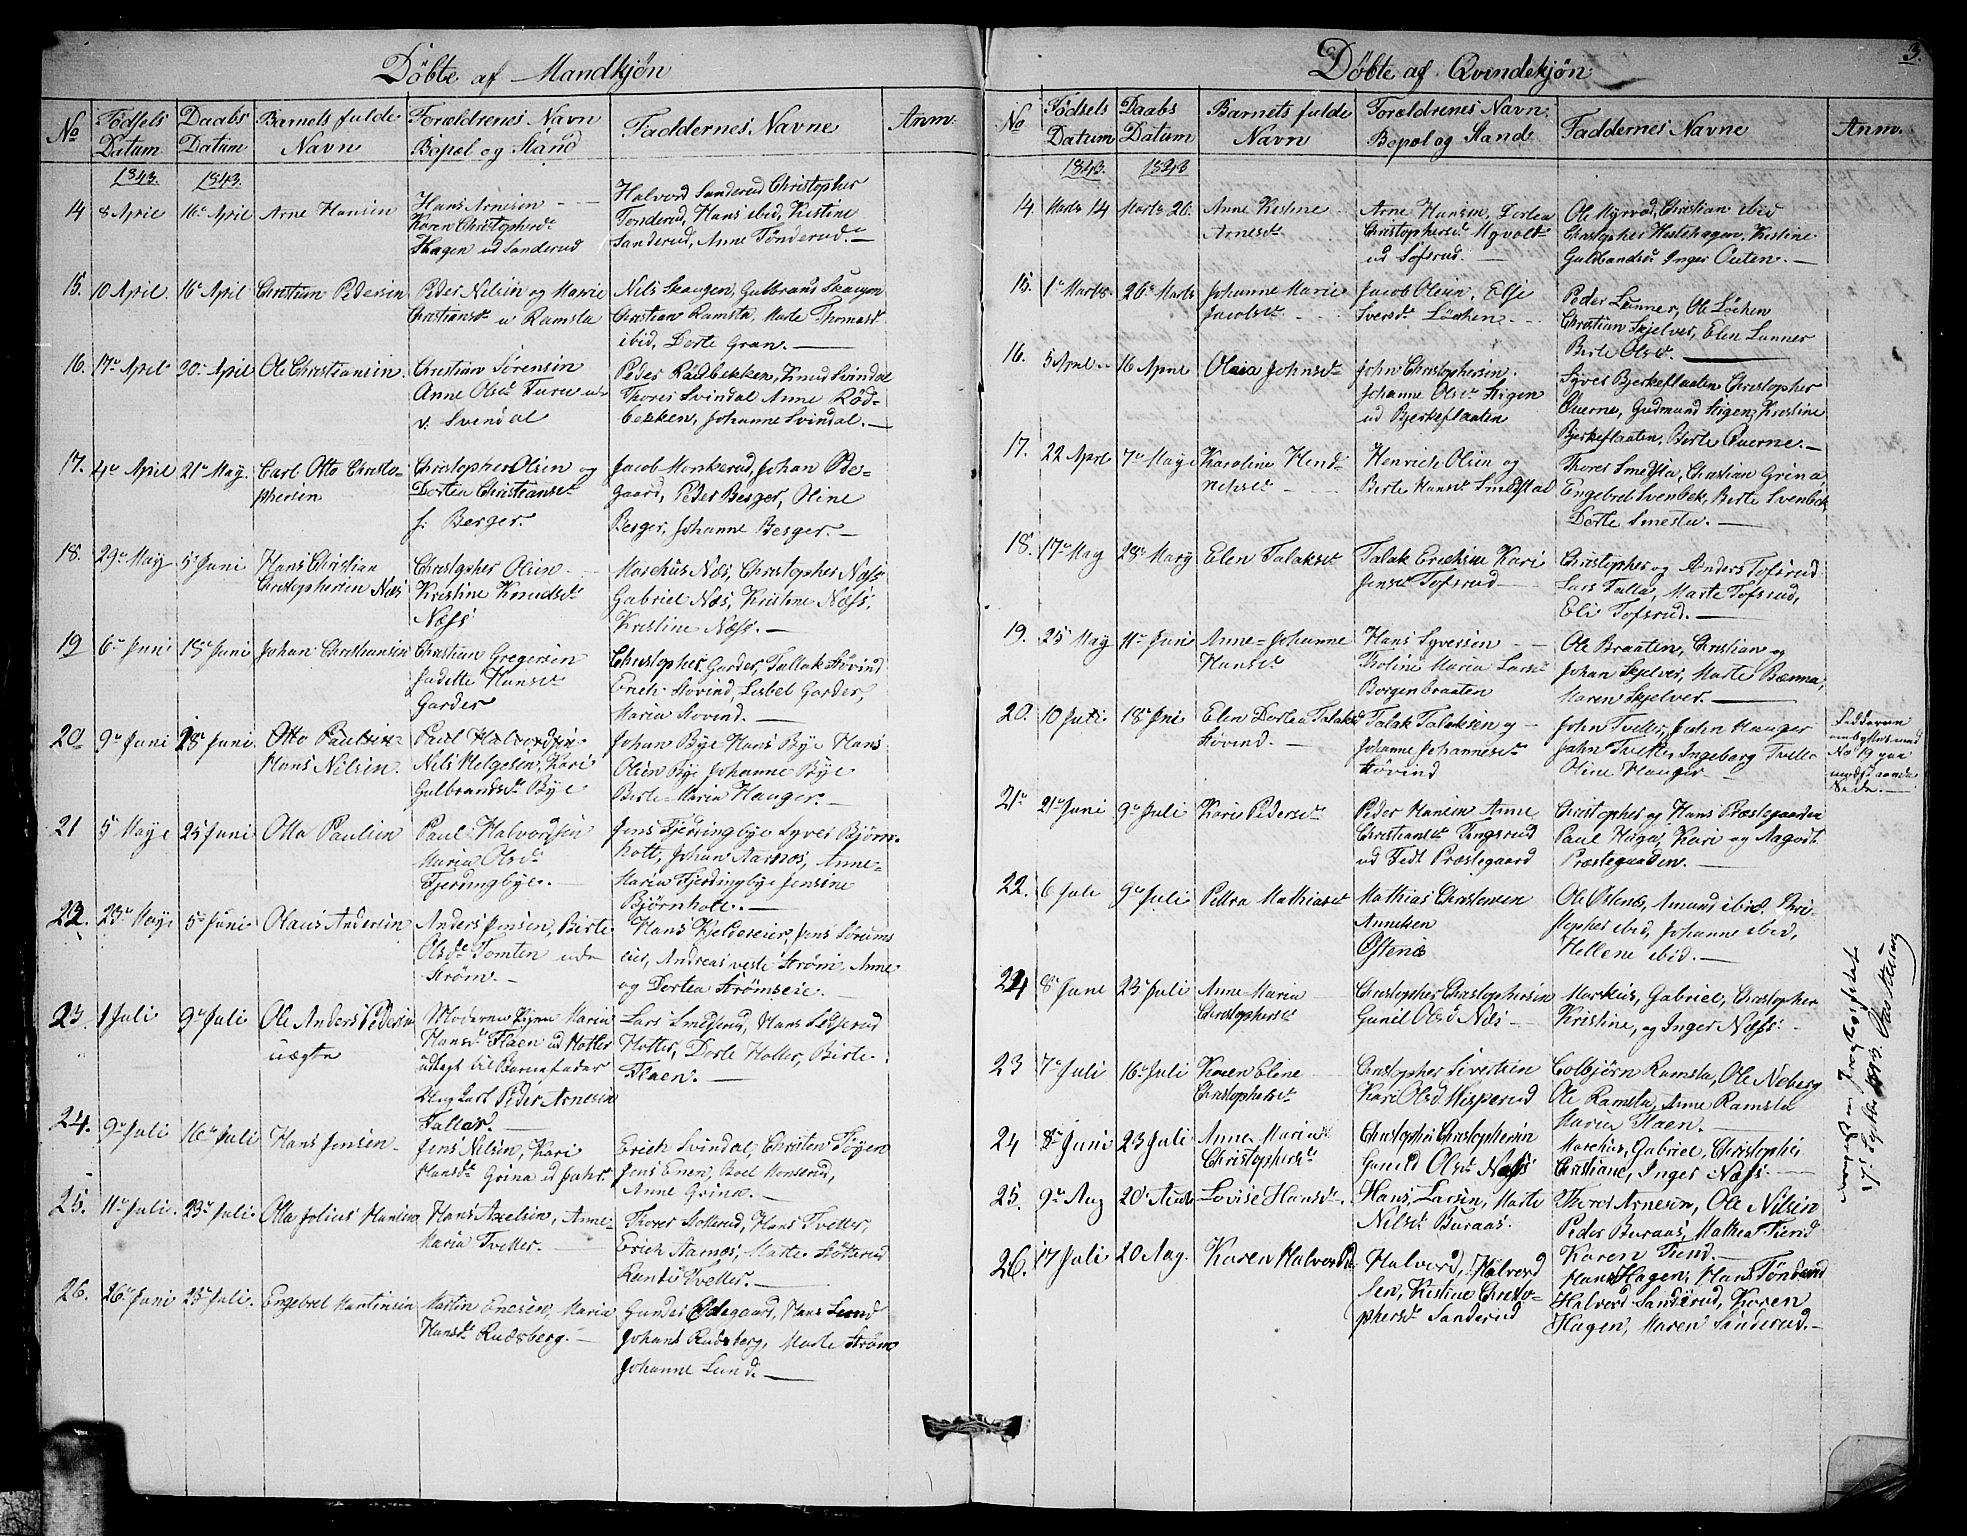 Døbte af Mandkjøn
No
Fødsels Datum
Daabs Datum
Barnets fulde Navn
Forældrenes Navn Bopæl og Stand
Faddernes Navne
Anm:
1843. 1843.
14 8 April 16de April Arne Hansen
Hans Arnesen
Karen Christophersdt
Hagen ud Sanderud
Halvord Sanderud Christopher
Tonderud, Hans ibid, Kistine
Sanderud, Anne Tønderud.
15. 10 April 16de April Christian Pedersen
Peder Nilsen og Marie
Christiansdt u Ramsta
Nils Skaugen, Gulbrand Skaugen
Christian Ramsta, Marte Thomasdt
ibid, Dorte Gran.
16. 17de April 30te April Ole Christiansen.
Christian Sørensen
Anne Olsdt
v. Svendal
Peder Rødbekken, Knud Svindal
Thores Svindal Anne Rød-
bekken, Johanne Svindal.
17. 4de April 21de May. Carl Otto Christo-
phersen
Christopher Olsen og
Dortea Christiansdt
f: Berger.
Jacob Monkerud, Johan Øde-
gaard, Peder Berger, Oline
Berger, Johanne Berger.
18. 29de May 5te Juni Hans Christian
Christophersen Næs
Christopher Olsen
Kristine Knudsdt
Næss
Marchus Næs, Christopher Næss
Gabriel Næs, Kristine Næss,
Kristine Næss.
19 6te Juni 18de Juni Johan Christiansen
Christian Gregersen
Jadette Hansdt
Garder
Christopher Garder, Tallak Høvind
Erich Hovind, Lisbet Garder,
Maria Hovind.
20 9de Juni 18de Juni Otto Paulsen
Hans Nilsen.
Paul Halvordsen
Nils Helgesen, Kari
Gulbrandsdt Bye
Johan Bye Hans Bye Hans
Olsen Bye Johanne Bye
Berte Maria Hauger.
21 5 Maye 25de Juni Otto Paulsen
Paul Halvordsen
Maria Olsdt
Fjerdingbye.
Jens Fjerdingbye Syver Bjørn-
holt, Johan Aarnæs, Anne-
Maria Fjerdingbye Jensine
Bjørnholt.
22. 23de Maye 5te Juni Olaus Andersen
Anders Jensen, Berte
Olsdt Tomten
Strøm.
Hans Kjeldereier, Jens Sørums
eier, Andreas vestre Strøm, Anne
og Dortea Strømseie.
23. 1 Juli 9de Juli Ole Anders Pedersen
uægte
Moderen Pigen Maria
Hansdt Flaen ud Holter
udlagt til Barnefader
Ungkarl Peder Arnesen
Fallar.
Lars Smedsrud, Hans
Holter, Dorte Holter, Berte
Flaen.
24. 9de Juli 16de Juli Hans Jensen.
Jens Nilsen, Kari
Hansdt Grina
Erich Svindal, Christen Tøyen
Jens Enen, Boel Monserud,
Anne Grina.
25. 11te Juli. 23de Juli. Otto Julius Hansen
Hans Axelsen, Anne-
Maria Tveter.
Thores Slotterud, Hans Tveter,
Erich Aarnæs, Marte Slotterud
Randi Tveter.
26. 26de Juni 23de Juli. Engebret Martinsen
Martin Enesen, Maria
Hansdt Rudsberg.
Gunder Ødegaard, Hans Lund
Johans Rudsberg, Marte Strøm
Johanne Lund.
Døbte af Qvindekjøn
3.
No
Fødsels Datum
Daabs Datum
Barnets fulde Navn
Forældrenes Navn. Bopæl og Stand
Faddernes Navne
Anm.
1843. 1843
14. Marts 14 Marts 26. Anne Kistine
Arnesdt
Arne Hansen, Dortea
Christophersdt Myrvolt
ud Tofsrud.
Ole Myrvold, Christian ibid
Christopher Hestehagen, Kristine
Gulbrandsdt Inger Outen.
15. 1te Marts 26de Marts Johanne Marie
Jacobsdt
Jacob Olsen, Else
Iversdt Løchen
Peder Lunner, Ole Løchen
Christian Skjelver, Elen Lunner
Berte Olsdt.
16. 5 April 16 April Olaia Johnsdt
John Christophersen.
Johanne Olsdt Stigen
ud Bjerkeflaaten
Syver Bjerkeflaaten Christopher
Querne, Gudmund Stigen, Kristine
Bjerkeflaaten, Berte Querne.
17. 22 April 7de Maye Karoline Hend-
richsdt
Henrich Olsen og
Berte Hansdt Smedstad
Thores Smedsta, Christian Grina,
Engebret Svenbek, Berte Svenbek
Dorte Smesta.
18. 17de May 28de May Elen Talaksdt
Talak Erichsen Kari
Jensdt Tofsrud
Christopher og Anders Tofsrud
Lars Falla, Marte Tofsrud,
Eli Tofsrud.
19. 25 May 11te Juni Anne Johanne
Hansdt
Hans Syversen
Tholine Maria Larsdt
Borgenbraaten
Ole Braaten, Christian og
Johan Skjelver, Marte Bænna,
Maren Skjelver.
20. 10 Juli 18de Jni Elen Dortea Talaksdt
Høvind.
Talak Talaksen og
Johanne Johannesdt
Høvind
John Tveter, John Hauger
John Tveter, Ingeborg Tveter
Oline Hauger
Fadderne
ombyttes med
No 19 paa
modstaaende
Side.
21de 21de Juni 9de Juli Kari Pedersdt
Peder Hansen Anne
Christiansdt Tingsrud
ud Fedt Præstegaard
Christopher og Hans Præstegaarden
Paul Høga, Kari og Aagodt
Præstegaarden.
22. 6 Juli 9de Juli Pettra Mathiasdt
Mathias Christensen
Anneken
Østenes
Ole Østenes, Amund ibid. Chri-
stopher ibid, Johanne ibid,
Hellene ibid.
24 8de June 23de Juli Anne Maria
Christophersdt
Christopher Christophersen
Gunil Olsd Nes
Markus, Gabriel, Christopher
Kristine, og Inger Næss.
23 7de Juli 16de Juli Karen Eline
Christophersdt
Christopher Sivertsen
Kari Olsd Misperud
Colbjørn Ramsta, Ole Noberg
Ole Ramsta, Anne Ramsta
Maria Flaen.
24 8de Juni 23 Juli Anne Maria
Christophersdt
Christopher Christophersen
Gunild Olsdt Næss
Marchus, Gabriel, Christopher
Christiane, Inger Næss
25. 9de Aug 20 Aug Lovise Hansdt
Hans Larsen, Marte
Nilsdt Buraas.
Thores Arnesen, Ole Nilsen
Peder Buraas, Mathea Tiend
Karen Tiend.
26. 17 Juli 20 Aug. Karen Halvorsdt
Halvord Halvord
sen, Kistine Christo-
phersdt Sanderud
Hans Hagen, Hans Tønderud
Halvord Sanderud, Karen
Hagen, Maren Sanderud.